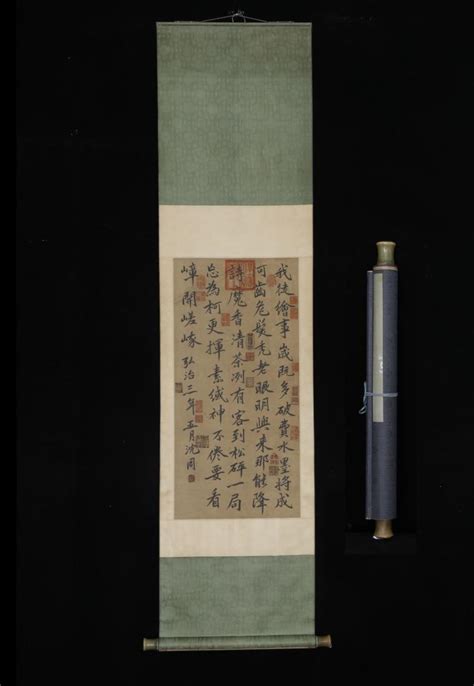 我從繪事歲既多破費水墨將成
可齒危髮禿老眼明興來那能降
詩魔香清茶冽有客到松砰一局
忘為柯更揮素絨神不倦要看
嶂開嵯峩弘治三年五月沈周